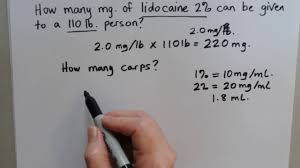 How many mg. of lidocaine 2% can be given
to a 110 lb. person?
2.0 mg/lb.
2.0 mg/lb x 110 lb = 220 mg.
How many carps?
1% = 10 mg/mL
2% = 20 mg/mL
1.8 mL.